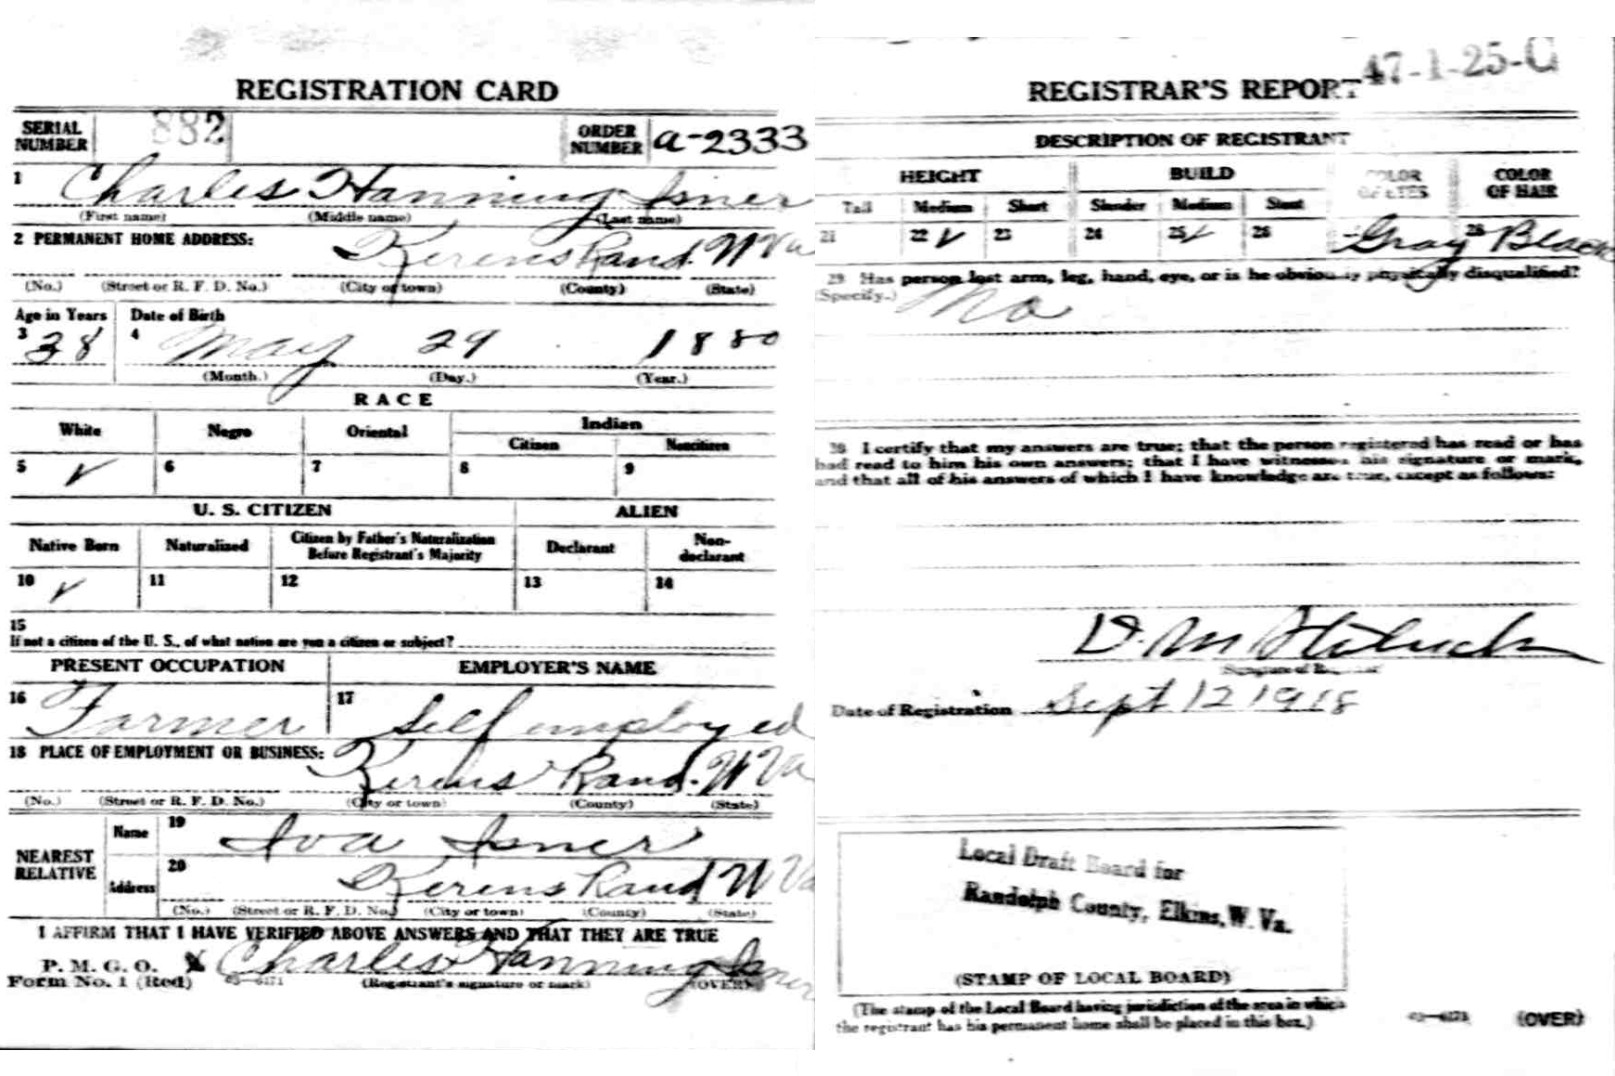 REGISTRATION CARD
SERIAL NUMBER 882 ORDER NUMBER a-2333
1 Charles Hanning Isner
(First name) (Middle name) (Last name)
2 PERMANENT HOME ADDRESS:
Kerens Rand. W Va
(No.) (Street or R. F. D. No.) (City or town) (County) (State)
Age in Years Date of Birth
3 38 4 May 29 1880
(Month.) (Day.) (Year.)
RACE
White Negro Oriental Indian
Citizen Noncitizen
5 ✓ 6 7 8 9
U. S. CITIZEN ALIEN
Native Born Naturalized Citizen by Father's Naturalization Before Registrant's Majority Declarant Non-declarant
10 ✓ 11 12 13 14
15
If not a citizen of the U. S., of what nation are you a citizen or subject?
PRESENT OCCUPATION EMPLOYER'S NAME
16 Farmer 17 Self employed
18 PLACE OF EMPLOYMENT OR BUSINESS:
Kerens Rand. W Va
(No.) (Street or R. F. D. No.) (City or town) (County) (State)
NEAREST RELATIVE
Name 19 Iva Isner
Address 20 Kerens Rand W Va
(No.) (Street or R. F. D. No.) (City or town) (County) (State)
I AFFIRM THAT I HAVE VERIFIED ABOVE ANSWERS AND THAT THEY ARE TRUE
P. M. G. O.
Form No. 1 (Red) 03—6171 X Charles Hanning Isner
(Registrant's signature or mark) (OVER)
47-1-25-C
REGISTRAR'S REPORT
DESCRIPTION OF REGISTRANT
HEIGHT BUILD COLOR OF EYES COLOR OF HAIR
Tall Medium Short Slender Medium Stout
21 22 ✓ 23 24 25 ✓ 26 Gray 28 Black
29 Has person lost arm, leg, hand, eye, or is he obviously physically disqualified?
(Specify.) No
30 I certify that my answers are true; that the person registered has read or has
had read to him his own answers; that I have witnessed his signature or mark,
and that all of his answers of which I have knowledge are true, except as follows:
D. M.
Signature of Registrar
Date of Registration Sept 12 1918
Local Draft Board for
Randolph County, Elkins, W. Va.
(STAMP OF LOCAL BOARD)
(The stamp of the Local Board having jurisdiction of the area in which
the registrant has his permanent home shall be placed in this box.)
03—6171 (OVER)